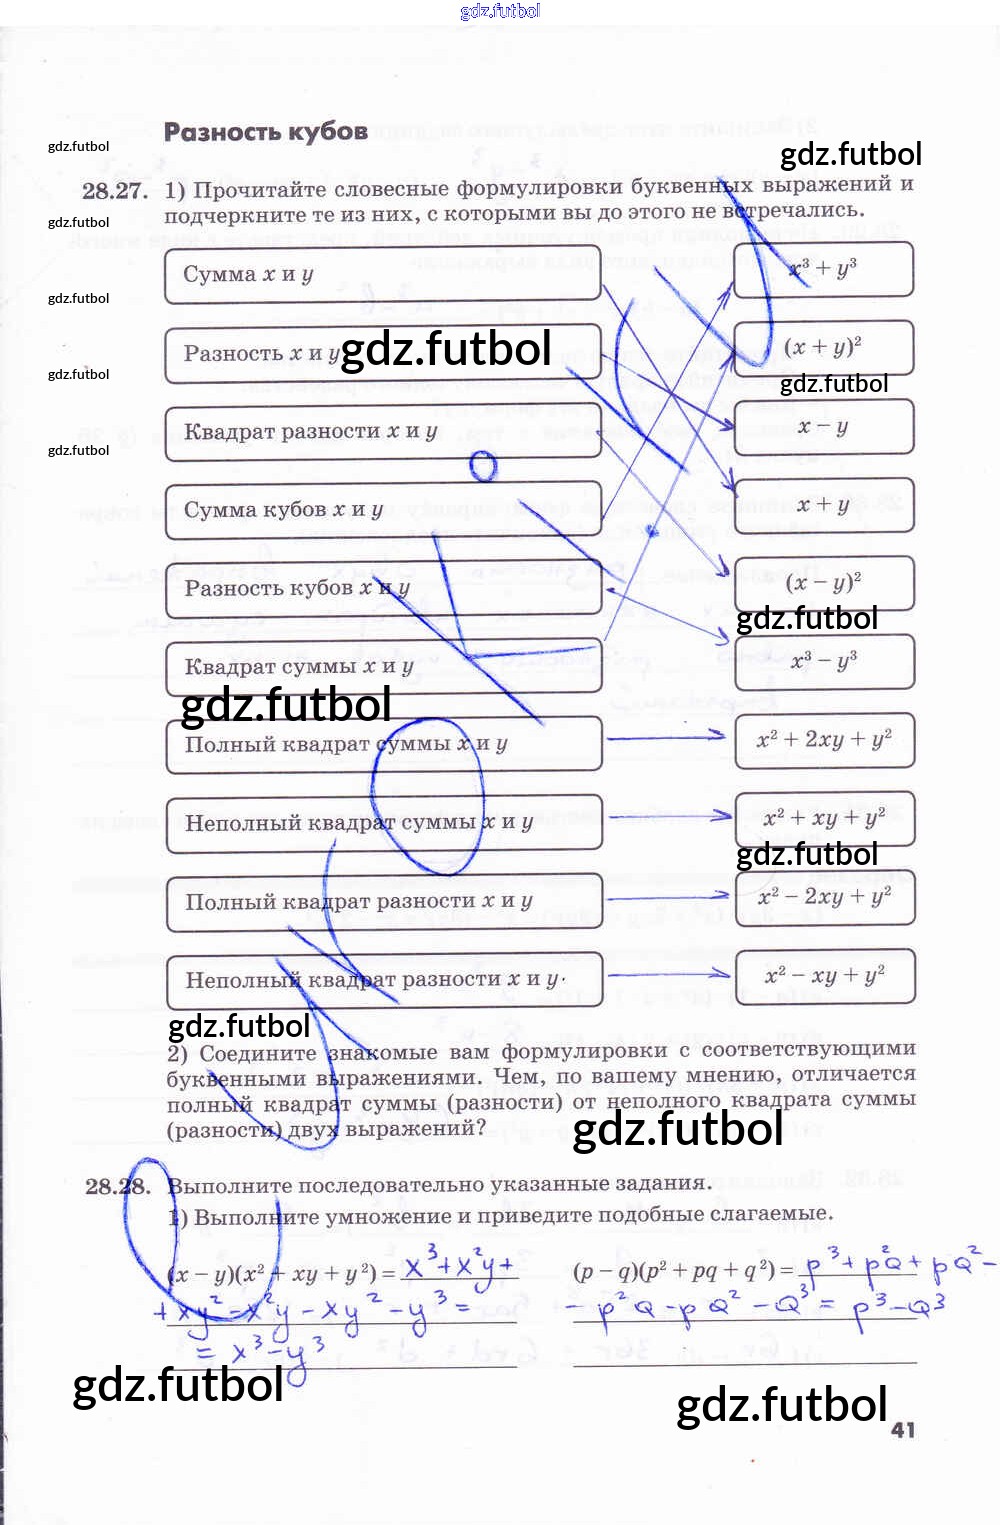 gdz.futbol
Разность кубов
gdz.futbol
gdz.futbol
28.27. 1) Прочитайте словесные формулировки буквенных выражений и
подчеркните те из них, с которыми вы до этого не встречались.
gdz.futbol
Сумма x и y
x³ + y³
gdz.futbol
Разность x и y
gdz.futbol
(x + y)²
gdz.futbol
gdz.futbol
Квадрат разности x и y
x − y
gdz.futbol
Сумма кубов x и y
x + y
Разность кубов x и y
(x − y)²
gdz.futbol
Квадрат суммы x и y
x³ − y³
gdz.futbol
Полный квадрат суммы x и y
x² + 2xy + y²
Неполный квадрат суммы x и y
x² + xy + y²
gdz.futbol
Полный квадрат разности x и y
x² − 2xy + y²
Неполный квадрат разности x и y.
x² − xy + y²
gdz.futbol
2) Соедините знакомые вам формулировки с соответствующими
буквенными выражениями. Чем, по вашему мнению, отличается
полный квадрат суммы (разности) от неполного квадрата суммы
(разности) двух выражений?
gdz.futbol
28.28. Выполните последовательно указанные задания.
1) Выполните умножение и приведите подобные слагаемые.
(x − y)(x² + xy + y²) = x³+x²y+
+xy²−x²y−xy²−y³=
= x³−y³
(p − q)(p² + pq + q²) = p³+p²q+pq²−
−p²q−pq²−q³= p³−q³
gdz.futbol
gdz.futbol
41